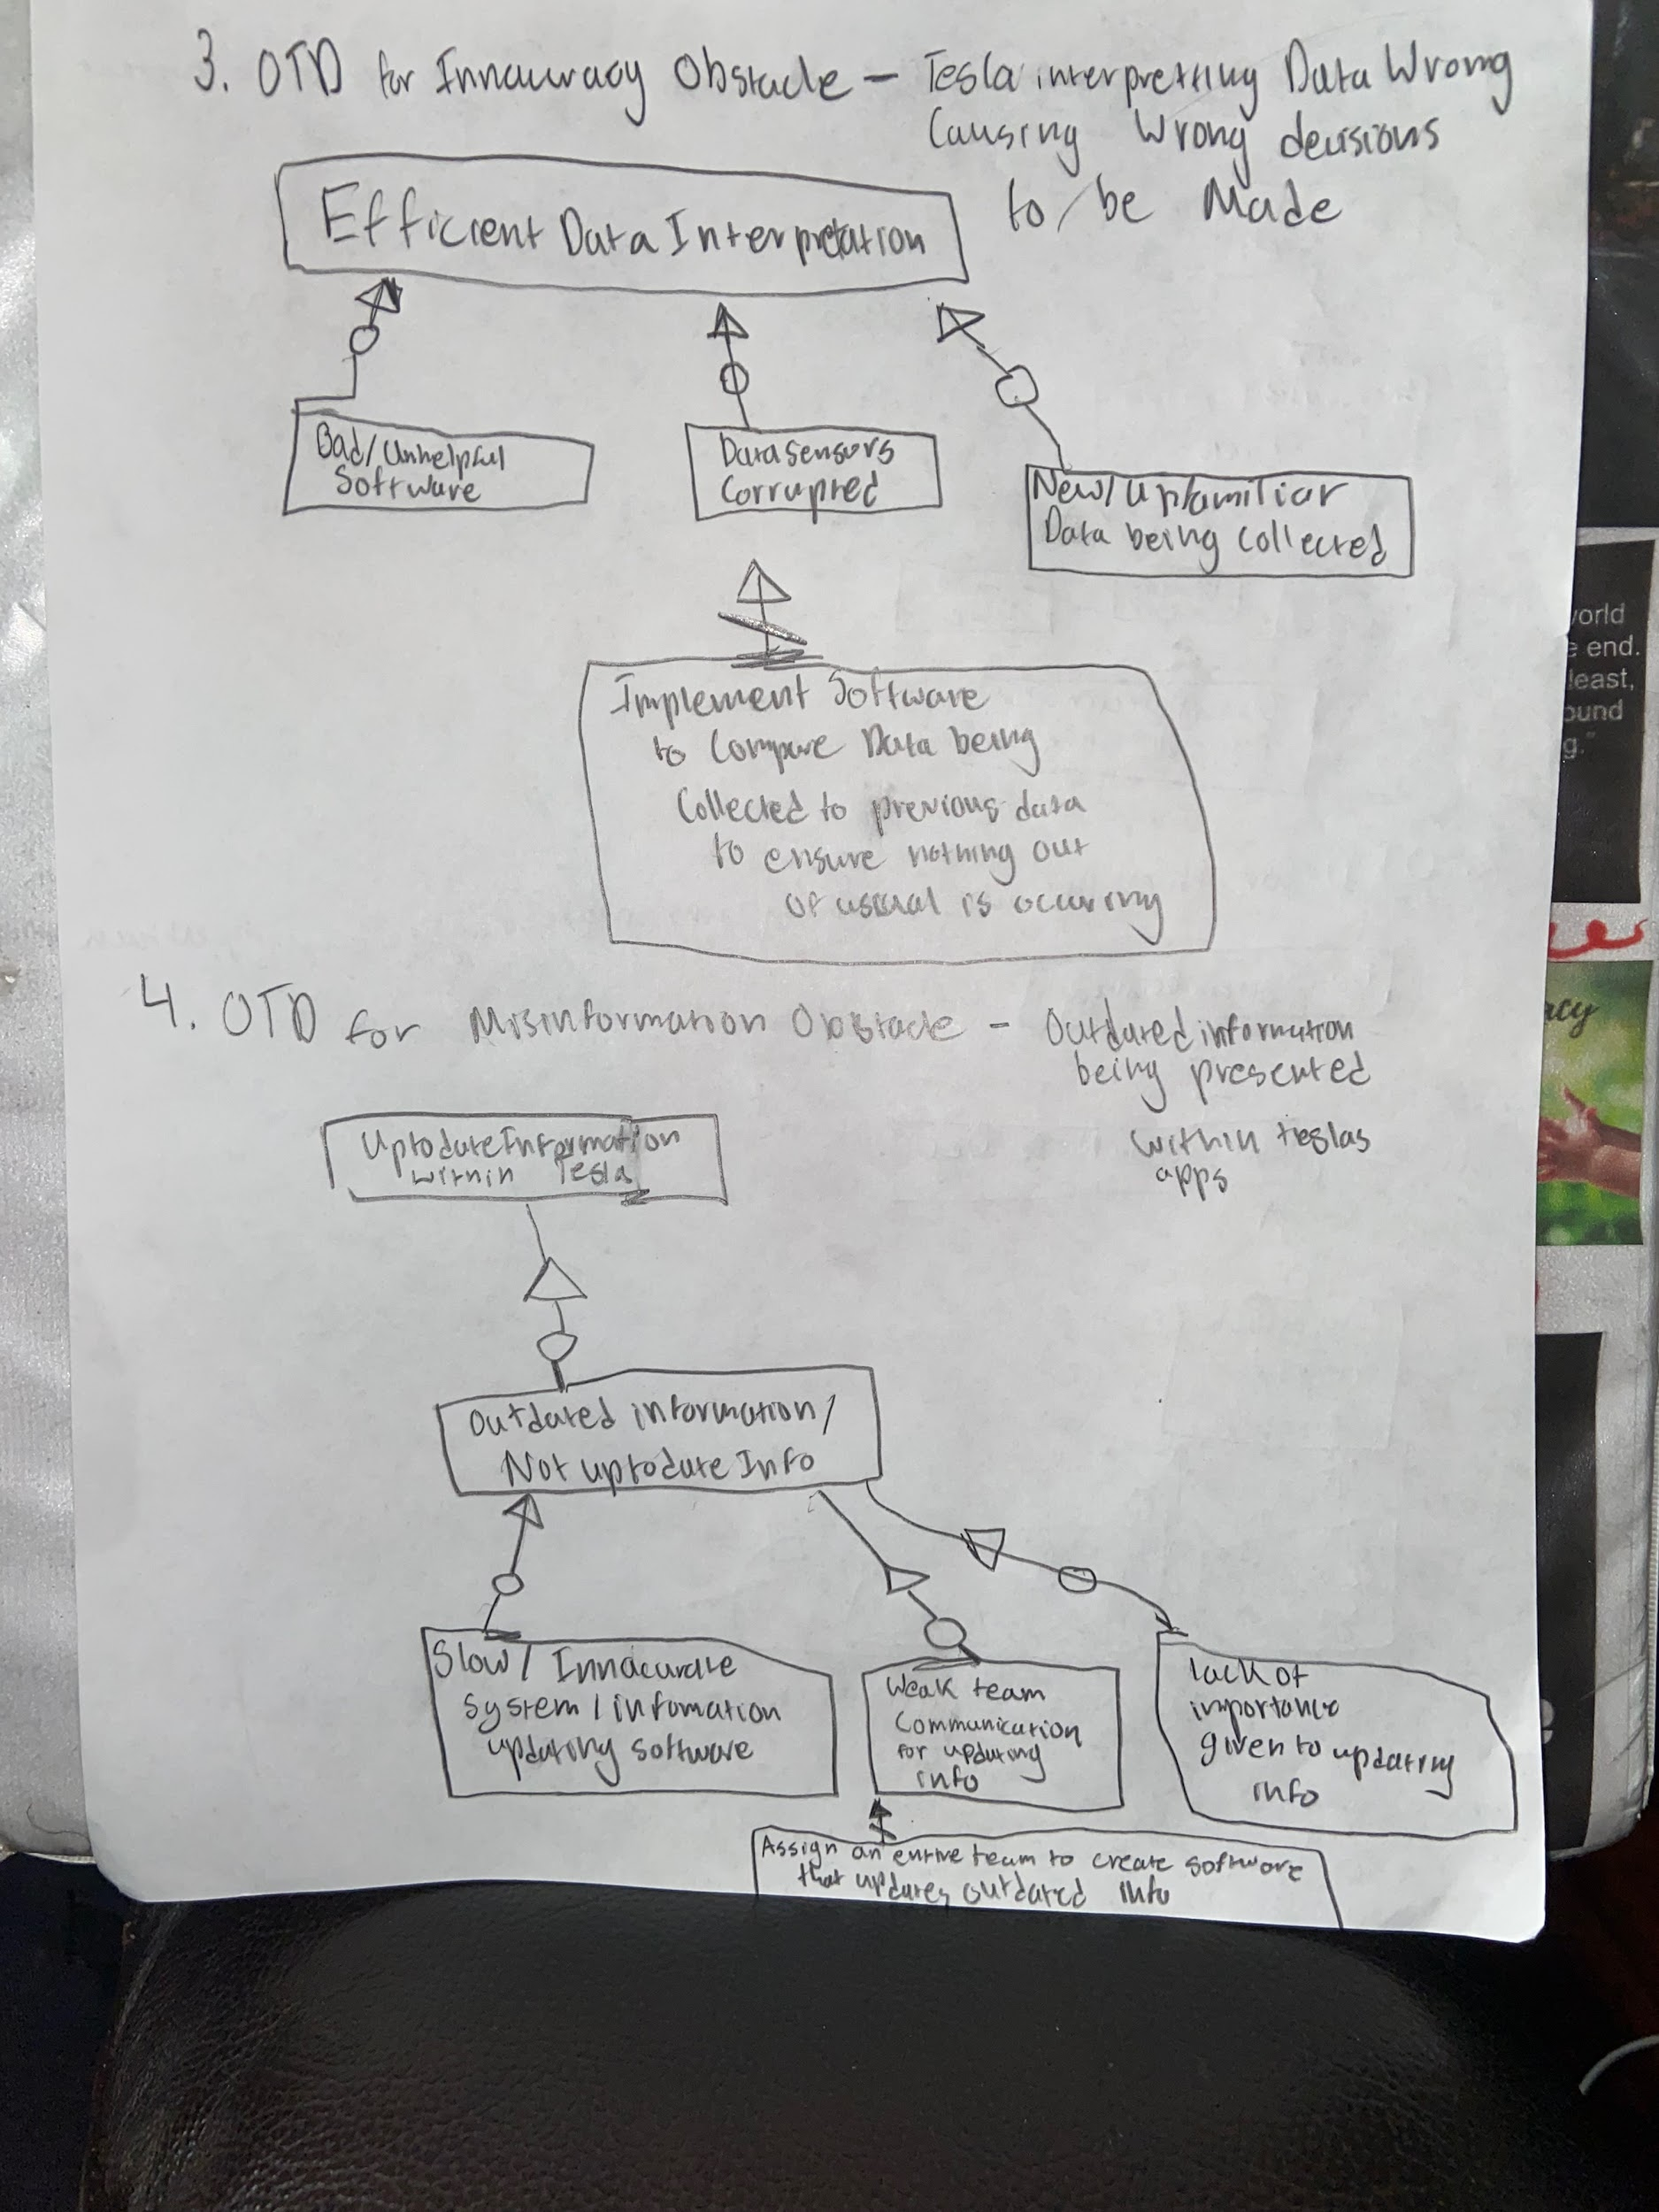 3. OTD for Innacuracy Obstacle - Tesla interpretting Data Wrong
Causing Wrong decisions
to be Made
Efficient Data Interpretation
Bad/Unhelpful
Software
Data Sensors
Corrupted
New/Unfamiliar
Data being Collected
Implement Software
to Compare Data being
Collected to previous data
to ensure nothing out
of usual is occuring
4. OTD for Misinformation Obstacle - Outdated information
being presented
within teslas
apps
Uptodate Information
within Tesla
Outdated information/
Not uptodate Info
Slow/ Innacurate
System/infomation
updating software
Weak team
Communication
for updating
info
lack of
importance
given to updating
info
Assign an entire team to create software
that updates outdated info
world
end.
least,
g."